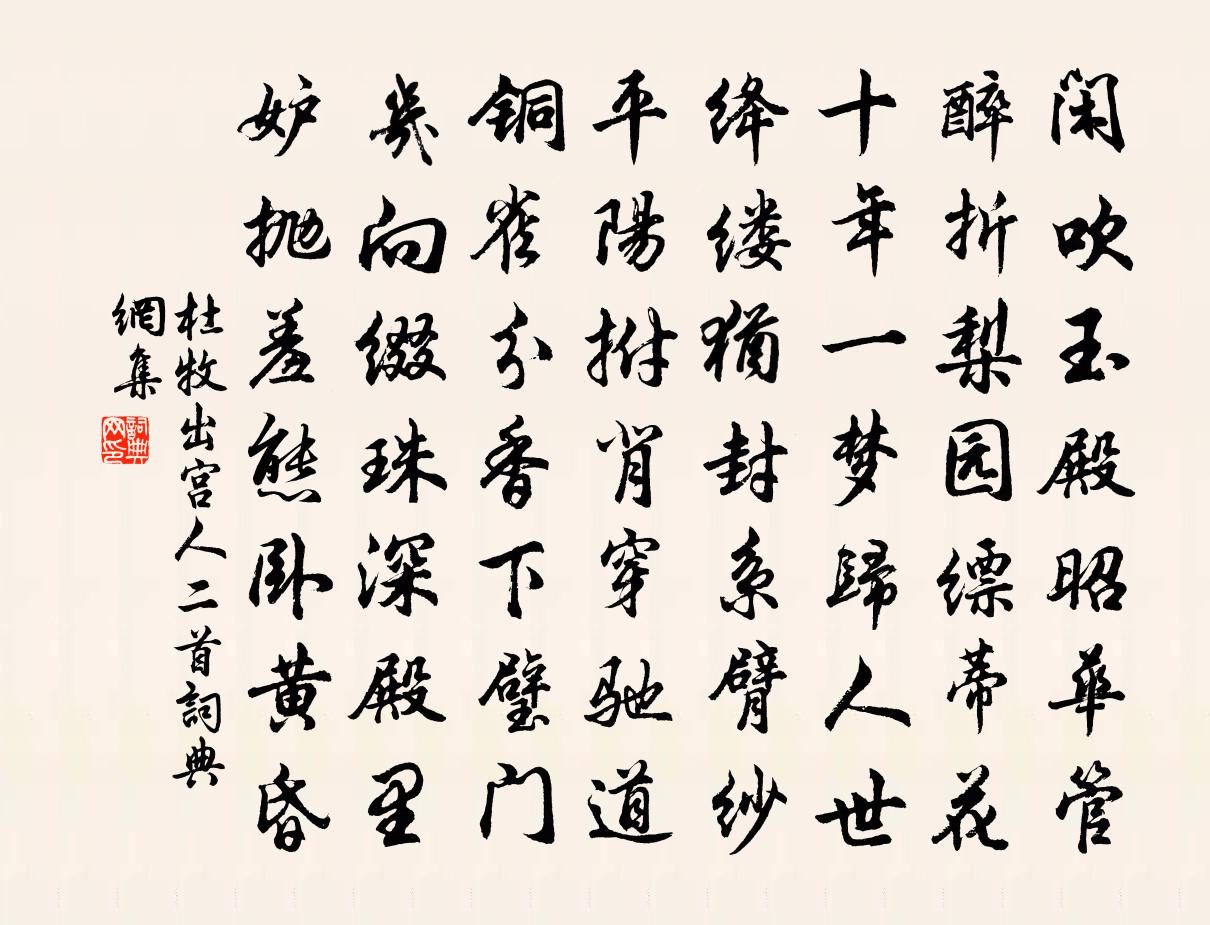 闲吹玉殿昭华管
醉折梨园缥蒂花
十年一梦歸人世
绛缕犹封系臂纱
平陽拊背穿驰道
铜雀分香下璧门
幾向缀珠深殿里
妒抛羞態卧黄昏
杜牧出宫人二首詞典
網集
詞典
网印